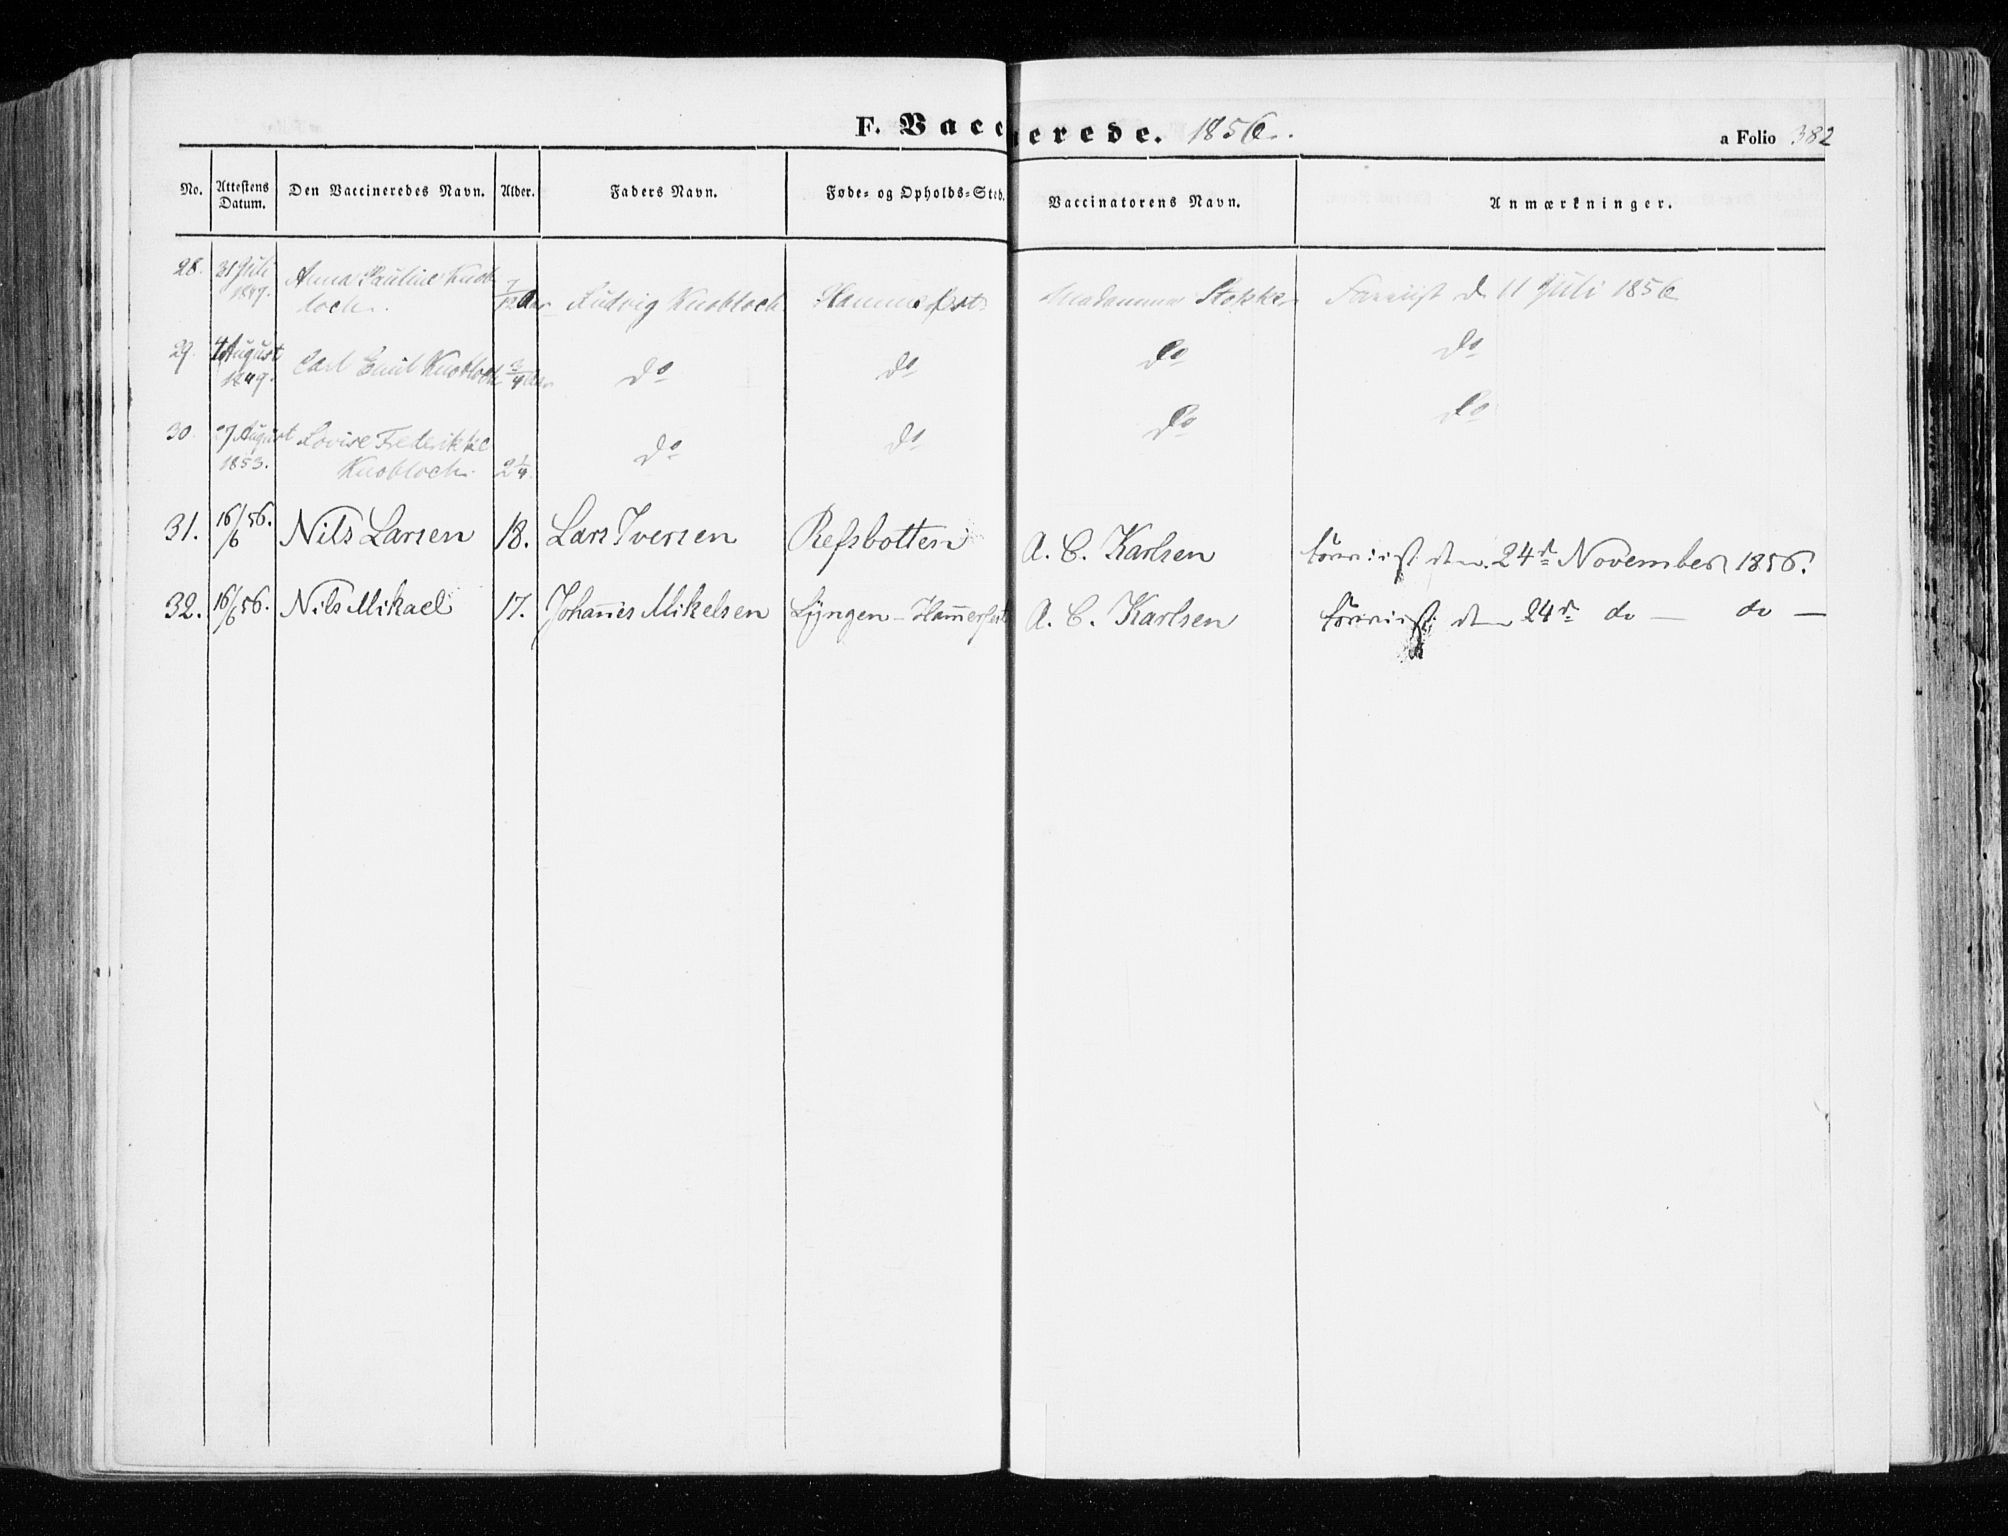 F. Vaccinerede. 1856. a Folio 382
No. Attestens Datum. Den Vaccineredes Navn. Alder. Faders Navn. Føde- og Opholds-Sted. Vaccinatorens Navn. Anmærkninger.
28. 31 Juli Anna Pauline Knob
1849. loch. 7/12 Aar Ludvig Knobloch Hammerfest Madamme Stokke Foreviist d 11 Juli 1856
29. 4 August
1849. Carl Emil Knobloch 3/4 Aar do do do do
30. 27 August Lovise Frederikke do do do do
1853. Knobloch. 2 1/4
31. 16/6 56. Nils Larsen 18. Lars Iversen Refsbotten A. C. Karlsen foreviist den 24d November 1856.
32. 16/6 56. Nils Mikael 17. Johannes Mikelsen Lyngen - Hammerfest A. C. Karlsen foreviist den 24d do — do —